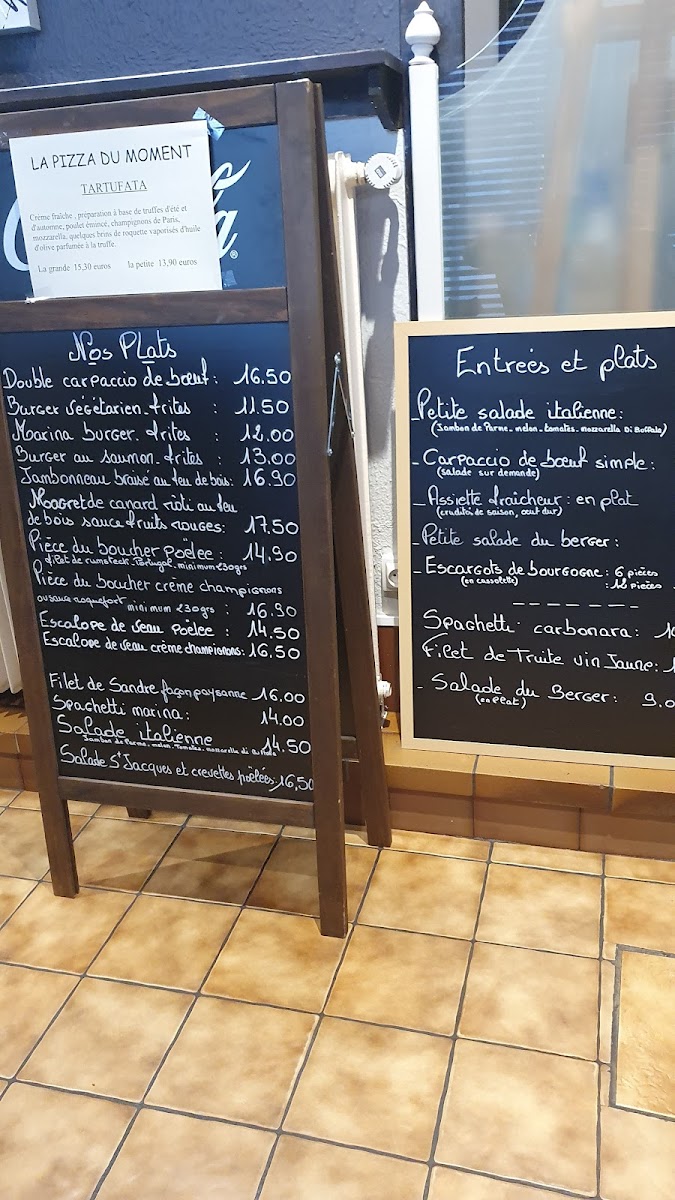 LA PIZZA DU MOMENT
TARTUFATA
Crème fraîche , preparation à base de truffes d'été et
d'automne, poulet émincé, champignons de Paris,
mozzarella, quelques brins de roquette vaporisés d'huile
d'olive parfumée à la truffe.
La grande 15,30 euros la petite 13,90 euros
Nos Plats
Double carpaccio de bœuf : 16.50
Burger végétarien. frites : 11.50
Marina burger. frites : 12.00
Burger au saumon. frites : 13.00
Jambonneau braisé au feu de bois: 16.90
Magret de canard rôti au feu
de bois sauce fruits rouges: 17.50
Pièce du boucher poëlee : 14.90
filet de rumsteck. Portugal. minimum 230grs
Pièce du boucher crème champignons
ou sauce roquefort minimum 230grs : 16.90
Escalope de veau poëlee : 14.50
Escalope de veau crème champignons: 16,50
Filet de Sandre façon paysanne 16.00
Spaghetti marina: 14.00
Salade italienne 14.50
Jambon de Parme. melon. Tomates. mozzarella di Buffala
Salade St Jacques et crevettes poëlées: 16,50
Entreés et plats
- Petite salade italienne:
(Jambon de Parme - melon - tomates - mozzarella Di Buffala)
- Carpaccio de bœuf simple:
(salade sur demande)
- Assiette fraicheur : en plat
(crudités de saison, œuf dur)
- Petite salade du berger :
- Escargots de bourgogne : 6 pièces
(en cassolette) : 12 pièces
- - - - - - -
Spaghetti carbonara: 1
Filet de Truite vin Jaune: 1
- Salade du Berger: 9.0
(en plat)